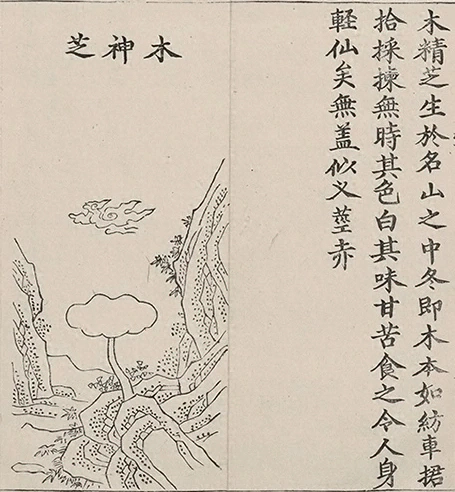 木精芝生於名山之中冬即木本如紡車据
拾採揀無時其色白其味甘苦食之令人身
軽仙矣無盖似义莖赤
木神芝